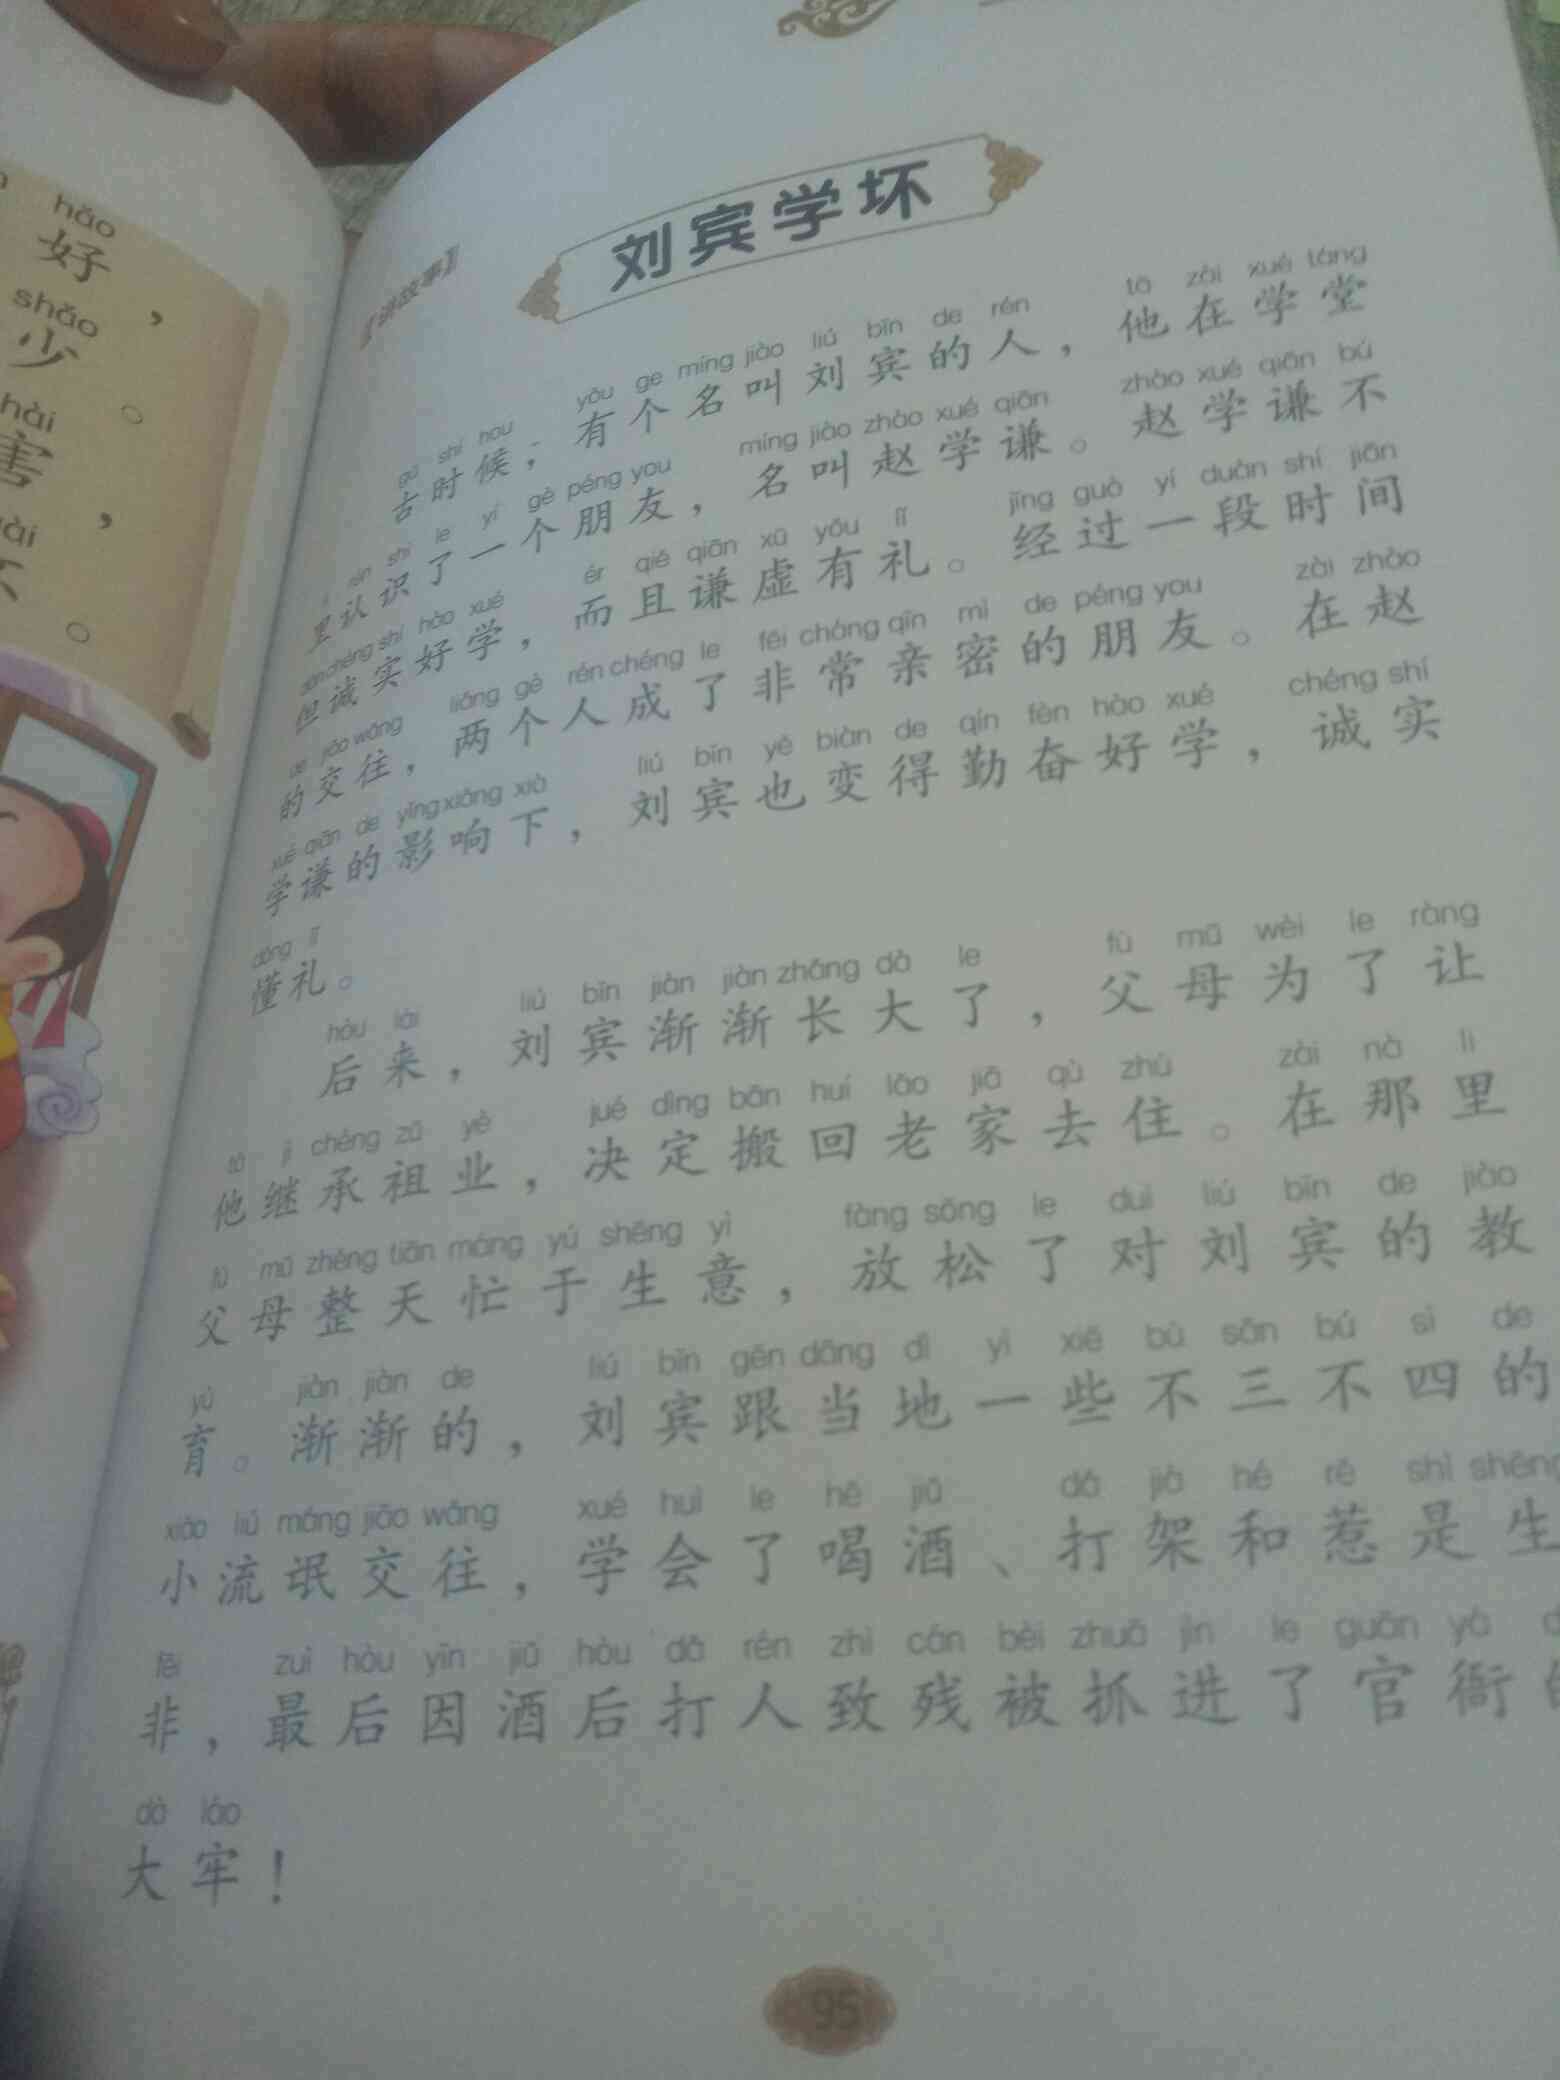 hǎo
好，
shǎo
少。
hài
害，
【讲故事】
刘宾学坏
gǔ shí hou yǒu ge míng jiào liú bīn de rén tā zài xué táng
古时候，有个名叫刘宾的人，他在学堂
rèn shi le yí gè péng you míng jiào zhào xué qiān zhào xué qiān bú
里认识了一个朋友，名叫赵学谦。赵学谦不
dàn chéng shí hào xué ér qiě qiān xū yǒu lǐ jīng guò yí duàn shí jiān
但诚实好学，而且谦虚有礼。经过一段时间
de jiāo wǎng liǎng gè rén chéng le fēi cháng qīn mì de péng you zài zhào
的交往，两个人成了非常亲密的朋友。在赵
xué qiān de yǐng xiǎng xià liú bīn yě biàn de qín fèn hào xué chéng shí
学谦的影响下，刘宾也变得勤奋好学，诚实
dǒng lǐ
懂礼。
hòu lái liú bīn jiàn jiàn zhǎng dà le fù mǔ wèi le ràng
后来，刘宾渐渐长大了，父母为了让
tā jì chéng zǔ yè jué dìng bān huí lǎo jiā qù zhù zài nà lǐ
他继承祖业，决定搬回老家去住。在那里
fù mǔ zhěng tiān máng yú shēng yì fàng sōng le duì liú bīn de jiào
父母整天忙于生意，放松了对刘宾的教
yù jiàn jiàn de liú bīn gēn dāng dì yì xiē bù sān bú sì de
育。渐渐的，刘宾跟当地一些不三不四的
xiǎo liú máng jiāo wǎng xué huì le hē jiǔ dǎ jià hé rě shì shēng
小流氓交往，学会了喝酒、打架和惹是生
fēi zuì hòu yīn jiǔ hòu dǎ rén zhì cán bèi zhuā jìn le guān yá
非，最后因酒后打人致残被抓进了官衙
dà láo
大牢！
95